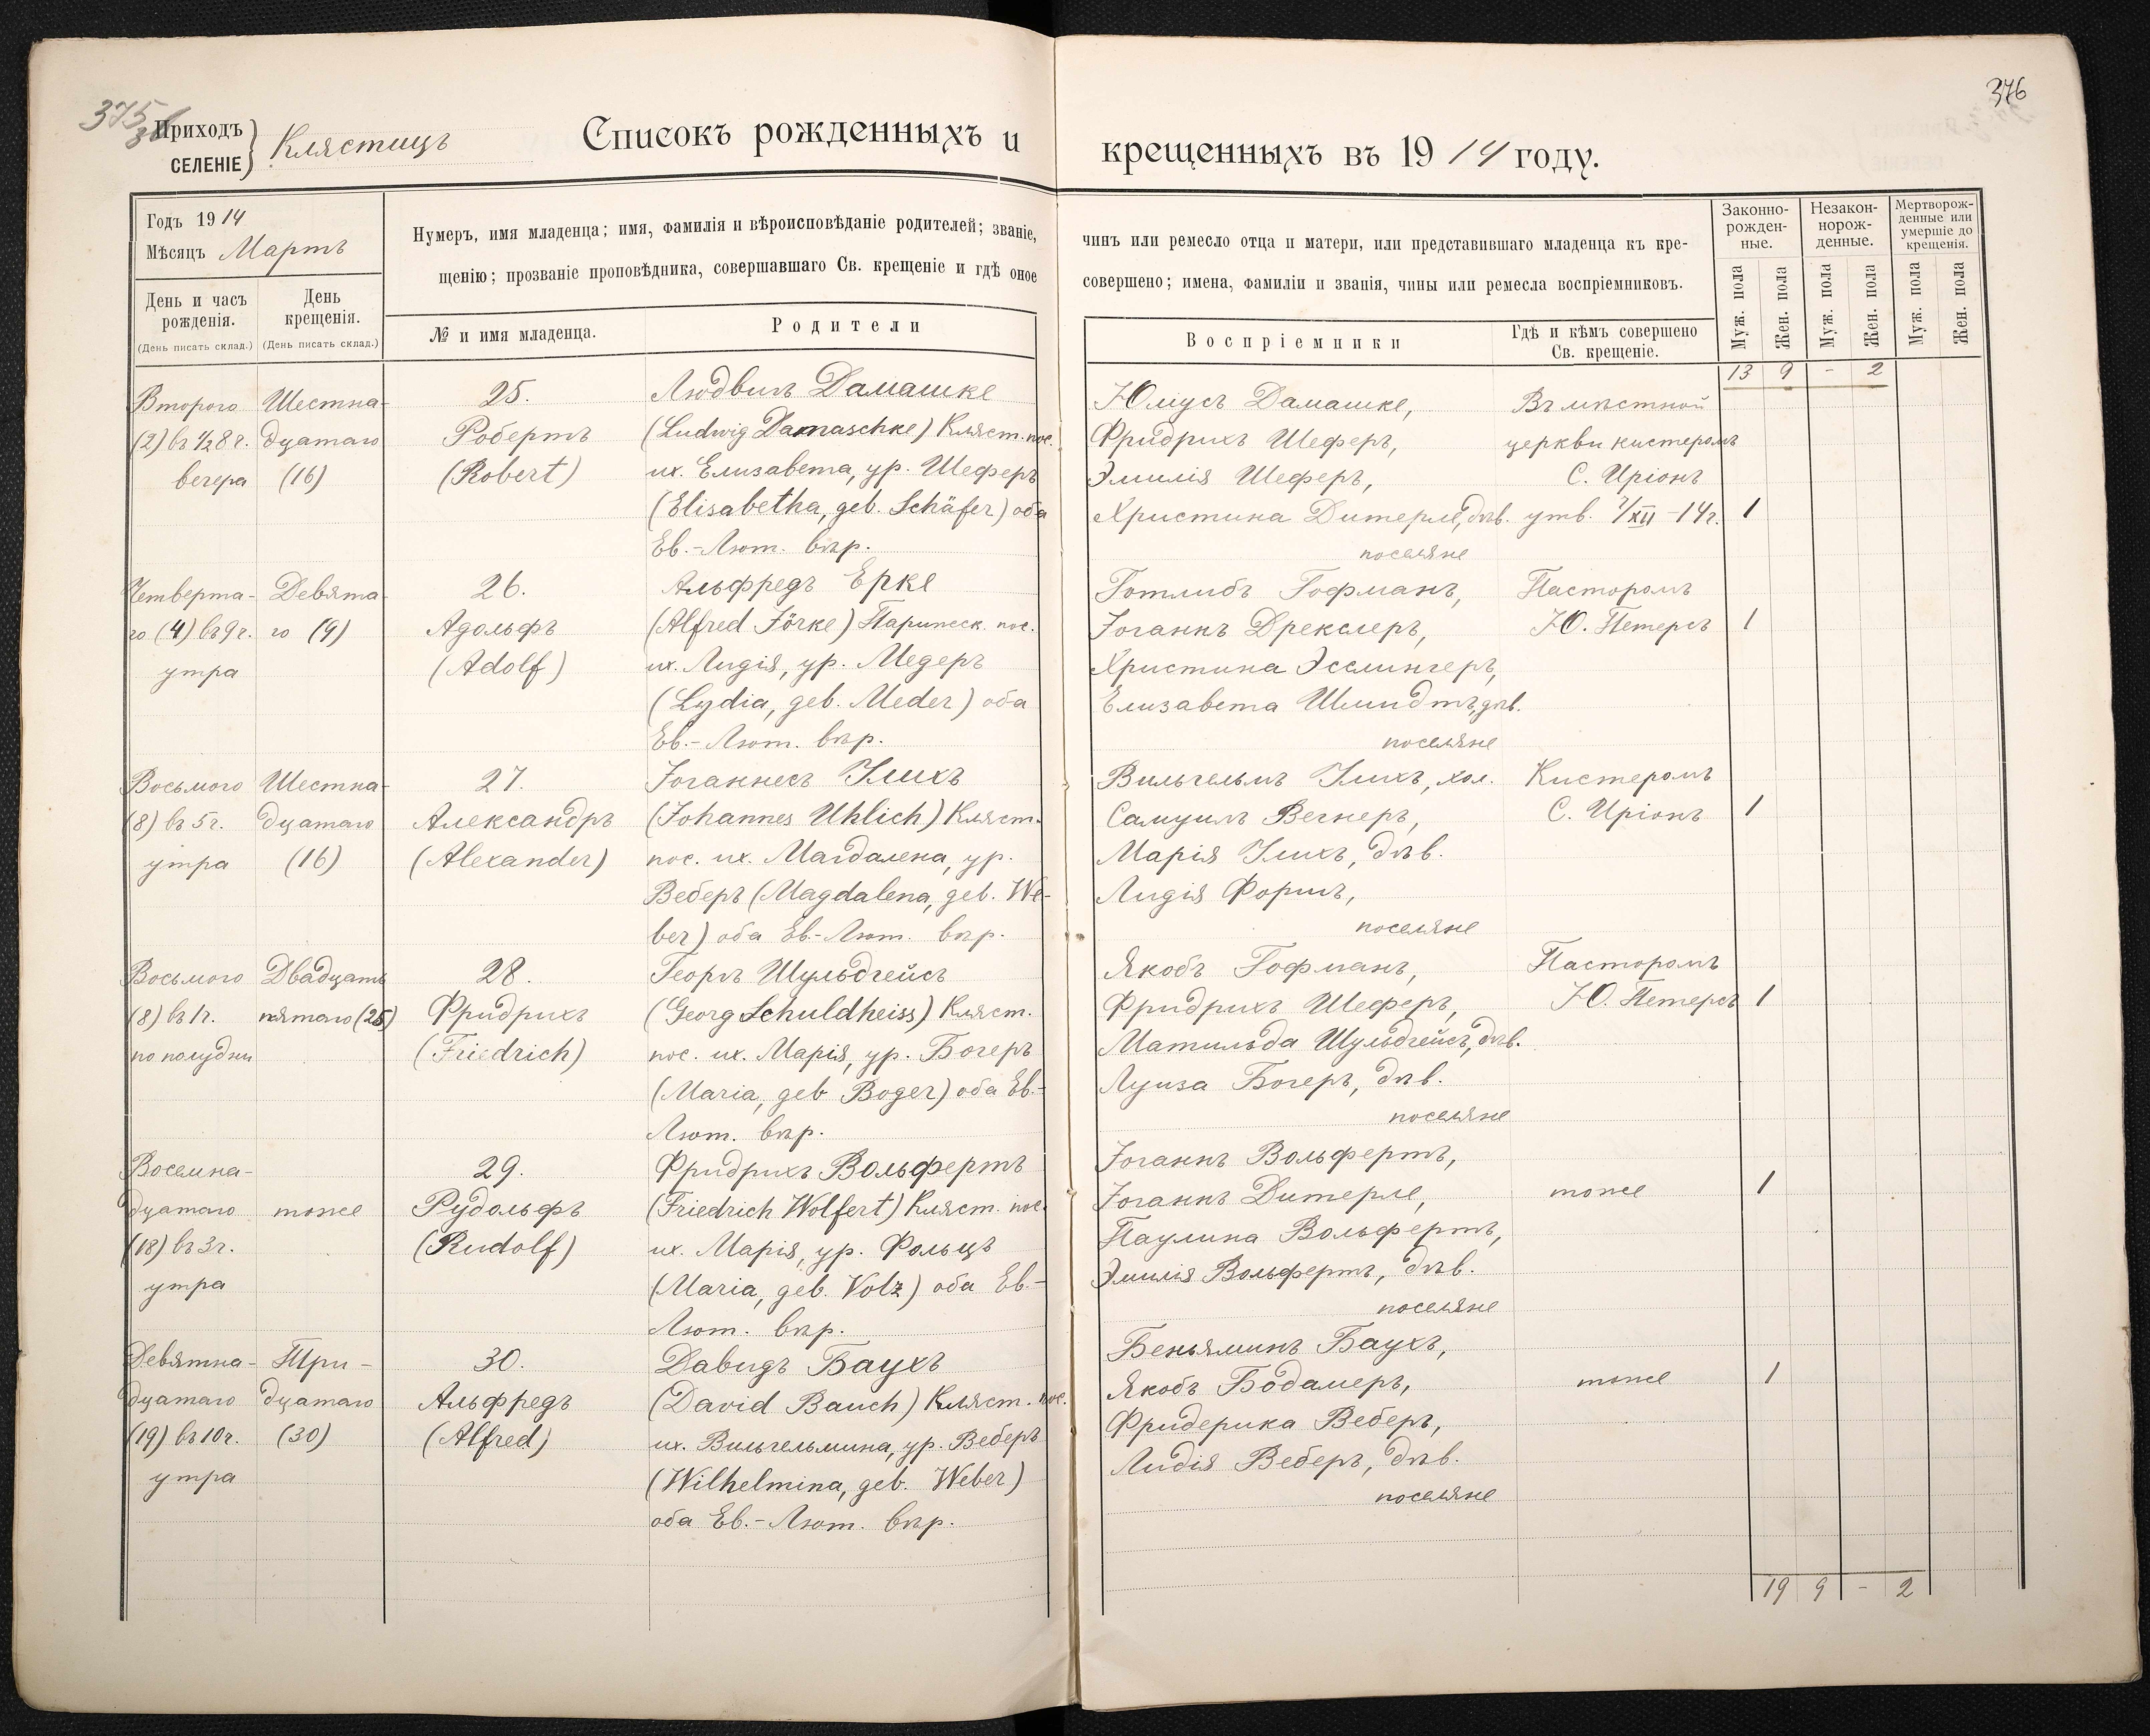 375
376
Приходъ
СЕЛЕНІЕ
Клястицъ
Списокъ рожденныхъ и крещенныхъ въ 1914 году.
Годъ 1914
Мѣсяцъ Мартъ
Нумеръ, имя младенца; имя, фамилія и вѣроисповѣданіе родителей; званіе, чинъ или ремесло отца и матери, или представившаго младенца къ кре-
щенію; прозваніе проповѣдника, совершавшаго Св. крещеніе и гдѣ оное совершено; имена, фамиліи и званія, чины или ремесла воспріемниковъ.
Законно-
рожден-
ные.
Незакон-
норож-
денные.
Мертворож-
денные или
умершіе до
крещенія.
Муж. пола
Жен. пола
Муж. пола
Жен. пола
Муж. пола
Жен. пола
День и часъ
рожденія.
(День писать склад.)
День
крещенія.
(День писать склад.)
№ и имя младенца.
Родители
Воспріемники
Гдѣ и кѣмъ совершено
Св. крещеніе.
13 9 - 2
Второго
(2) въ ½8 ч.
вечера
Шестна-
дцатаго
(16)
25.
Робертъ
(Robert)
Людвигъ Дамашке
(Ludwig Damaschke) Кляст. пос.
их. Елизавета, ур. Шеферъ
(Elisabetha, geb. Schäfer) оба
Ев.-Лют. вѣр.
Юлиусъ Дамашке,
Фридрихъ Шеферъ,
Эмилія Шеферъ,
Христина Дитерле, дѣв.
поселяне
Въ мѣстной
церкви кистеромъ
С. Иріонъ
утв. 2/XII-14 г.
1
Четверта-
го (4) въ 9 ч.
утра
Девята-
го (9)
26.
Адольфъ
(Adolf)
Альфредъ Ерке
(Alfred Jörke) Парижск. пос.
их. Лидія, ур. Медеръ
(Lydia, geb. Meder) оба
Ев.-Лют. вѣр.
Готлибъ Гофманъ,
Іоганнъ Дрекслеръ,
Христина Эсслингеръ,
Елизавета Шмидтъ, дѣв.
поселяне
Пасторомъ
Ю. Петерсъ
1
Восьмого
(8) въ 5 ч.
утра
Шестна-
дцатаго
(16)
27.
Александръ
(Alexander)
Іоганнесъ Улихъ
(Johannes Uhlich) Кляст.
пос. их. Магдалена, ур.
Веберъ (Magdalena, geb. We-
ber) оба Ев.-Лют. вѣр.
Вильгельмъ Улихъ, хол.
Самуилъ Вегнеръ,
Марія Улихъ, дѣв.
Лидія Форшъ,
поселяне
Кистеромъ
С. Иріонъ
1
Восьмого
(8) въ 1 ч.
по полудни
Двадцать
пятаго (25)
28.
Фридрихъ
(Friedrich)
Георгъ Шульдгейсъ
(Georg Schuldheiss) Кляст.
пос. их. Марія, ур. Богеръ
(Maria, geb Boger) оба Ев.-
Лют. вѣр.
Якобъ Гофманъ,
Фридрихъ Шеферъ,
Матильда Шульдгейсъ, дѣв.
Луиза Богеръ, дѣв.
поселяне
Пасторомъ
Ю. Петерсъ
1
Восемна-
дцатаго
(18) въ 3 ч.
утра
тоже
29.
Рудольфъ
(Rudolf)
Фридрихъ Вольфертъ
(Friedrich Wolfert) Кляст. пос.
их. Марія, ур. Фольцъ
(Maria, geb. Volz) оба Ев.-
Лют. вѣр.
Іоганнъ Вольфертъ,
Іоганнъ Дитерле,
Паулина Вольфертъ,
Эмилія Вольфертъ, дѣв.
поселяне
тоже
1
Девятна-
дцатаго
(19) въ 10 ч.
утра
Три-
дцатаго
(30)
30.
Альфредъ
(Alfred)
Давидъ Баухъ
(David Bauch) Кляст. пос.
их. Вильгельмина, ур. Веберъ
(Wilhelmina, geb. Weber)
оба Ев.-Лют. вѣр.
Беньяминъ Баухъ,
Якобъ Бодамеръ,
Фридерика Веберъ,
Лидія Веберъ, дѣв.
поселяне
тоже
1
19 9 - 2